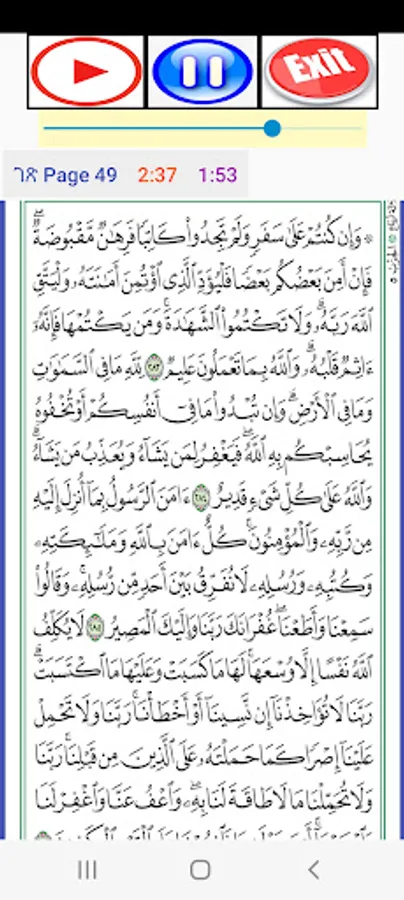 Exit
ገጽ Page 49 2:37 1:53
۞ وَإِن كُنتُمْ عَلَىٰ سَفَرٍ وَلَمْ تَجِدُوا۟ كَاتِبًا فَرِهَٰنٌ مَّقْبُوضَةٌ ۖ
فَإِنْ أَمِنَ بَعْضُكُم بَعْضًا فَلْيُؤَدِّ ٱلَّذِى ٱؤْتُمِنَ أَمَٰنَتَهُۥ وَلْيَتَّقِ
ٱللَّهَ رَبَّهُۥ ۗ وَلَا تَكْتُمُوا۟ ٱلشَّهَٰدَةَ ۚ وَمَن يَكْتُمْهَا فَإِنَّهُۥٓ
ءَاثِمٌ قَلْبُهُۥ ۗ وَٱللَّهُ بِمَا تَعْمَلُونَ عَلِيمٌ ٢٨٣ لِّلَّهِ مَا فِى ٱلسَّمَٰوَٰتِ
وَمَا فِى ٱلْأَرْضِ ۗ وَإِن تُبْدُوا۟ مَا فِىٓ أَنفُسِكُمْ أَوْ تُخْفُوهُ
يُحَاسِبْكُم بِهِ ٱللَّهُ ۖ فَيَغْفِرُ لِمَن يَشَآءُ وَيُعَذِّبُ مَن يَشَآءُ ۗ
وَٱللَّهُ عَلَىٰ كُلِّ شَىْءٍ قَدِيرٌ ٢٨٤ ءَامَنَ ٱلرَّسُولُ بِمَآ أُنزِلَ إِلَيْهِ
مِن رَّبِّهِۦ وَٱلْمُؤْمِنُونَ ۚ كُلٌّ ءَامَنَ بِٱللَّهِ وَمَلَٰٓئِكَتِهِۦ
وَكُتُبِهِۦ وَرُسُلِهِۦ لَا نُفَرِّقُ بَيْنَ أَحَدٍ مِّن رُّسُلِهِۦ ۚ وَقَالُوا۟
سَمِعْنَا وَأَطَعْنَا ۖ غُفْرَانَكَ رَبَّنَا وَإِلَيْكَ ٱلْمَصِيرُ ٢٨٥ لَا يُكَلِّفُ
ٱللَّهُ نَفْسًا إِلَّا وُسْعَهَا ۚ لَهَا مَا كَسَبَتْ وَعَلَيْهَا مَا ٱكْتَسَبَتْ ۗ
رَبَّنَا لَا تُؤَاخِذْنَآ إِن نَّسِينَآ أَوْ أَخْطَأْنَا ۚ رَبَّنَا وَلَا تَحْمِلْ
عَلَيْنَآ إِصْرًا كَمَا حَمَلْتَهُۥ عَلَى ٱلَّذِينَ مِن قَبْلِنَا ۚ رَبَّنَا
وَلَا تُحَمِّلْنَا مَا لَا طَاقَةَ لَنَا بِهِۦ ۖ وَٱعْفُ عَنَّا وَٱغْفِرْ لَنَا